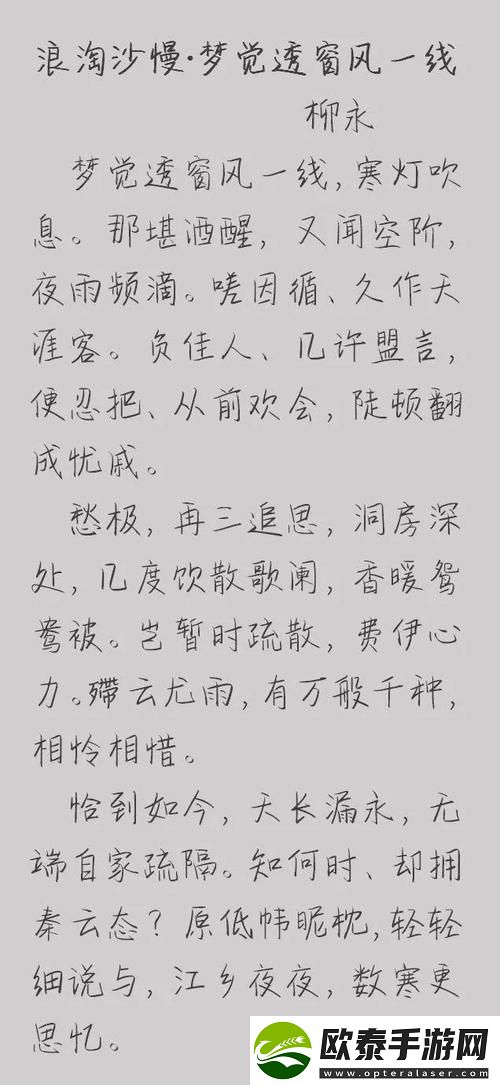 浪淘沙慢·梦觉透窗风一线
柳永
梦觉透窗风一线，寒灯吹
息。那堪酒醒，又闻空阶，
夜雨频滴。嗟因循、久作天
涯客。负佳人、几许盟言，
便忍把、从前欢会，陡顿翻
成忧戚。
愁极，再三追思，洞房深
处，几度饮散歌阑，香暖鸳
鸯被。岂暂时疏散，费伊心
力。殢云尤雨，有万般千种，
相怜相惜。
恰到如今，天长漏永，无
端自家疏隔。知何时、却拥
秦云态？原低帏昵枕，轻轻
细说与，江乡夜夜，数寒更
思忆。
欧泰手游网
www.opteralaser.com